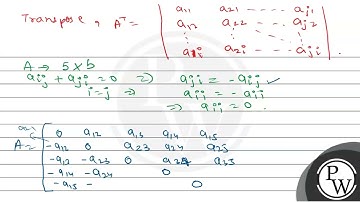 a11 a21 ---- aj1
Transpose, Aᵀ = a12 a22 ---- aj2
⋮ ⋮ ⋮
a2i ---- aji
A → 5×6
aij + aji = 0 ⇒ aji = -aij ✓
i=j ⇒ aii = -aii
⇒ aii = 0.
A = 0 a12 a13 a14 a15
-a12 0 a23 a24 a25
-a13 -a23 0 a34 a35
-a14 -a24 0
-a15 - 0
PW